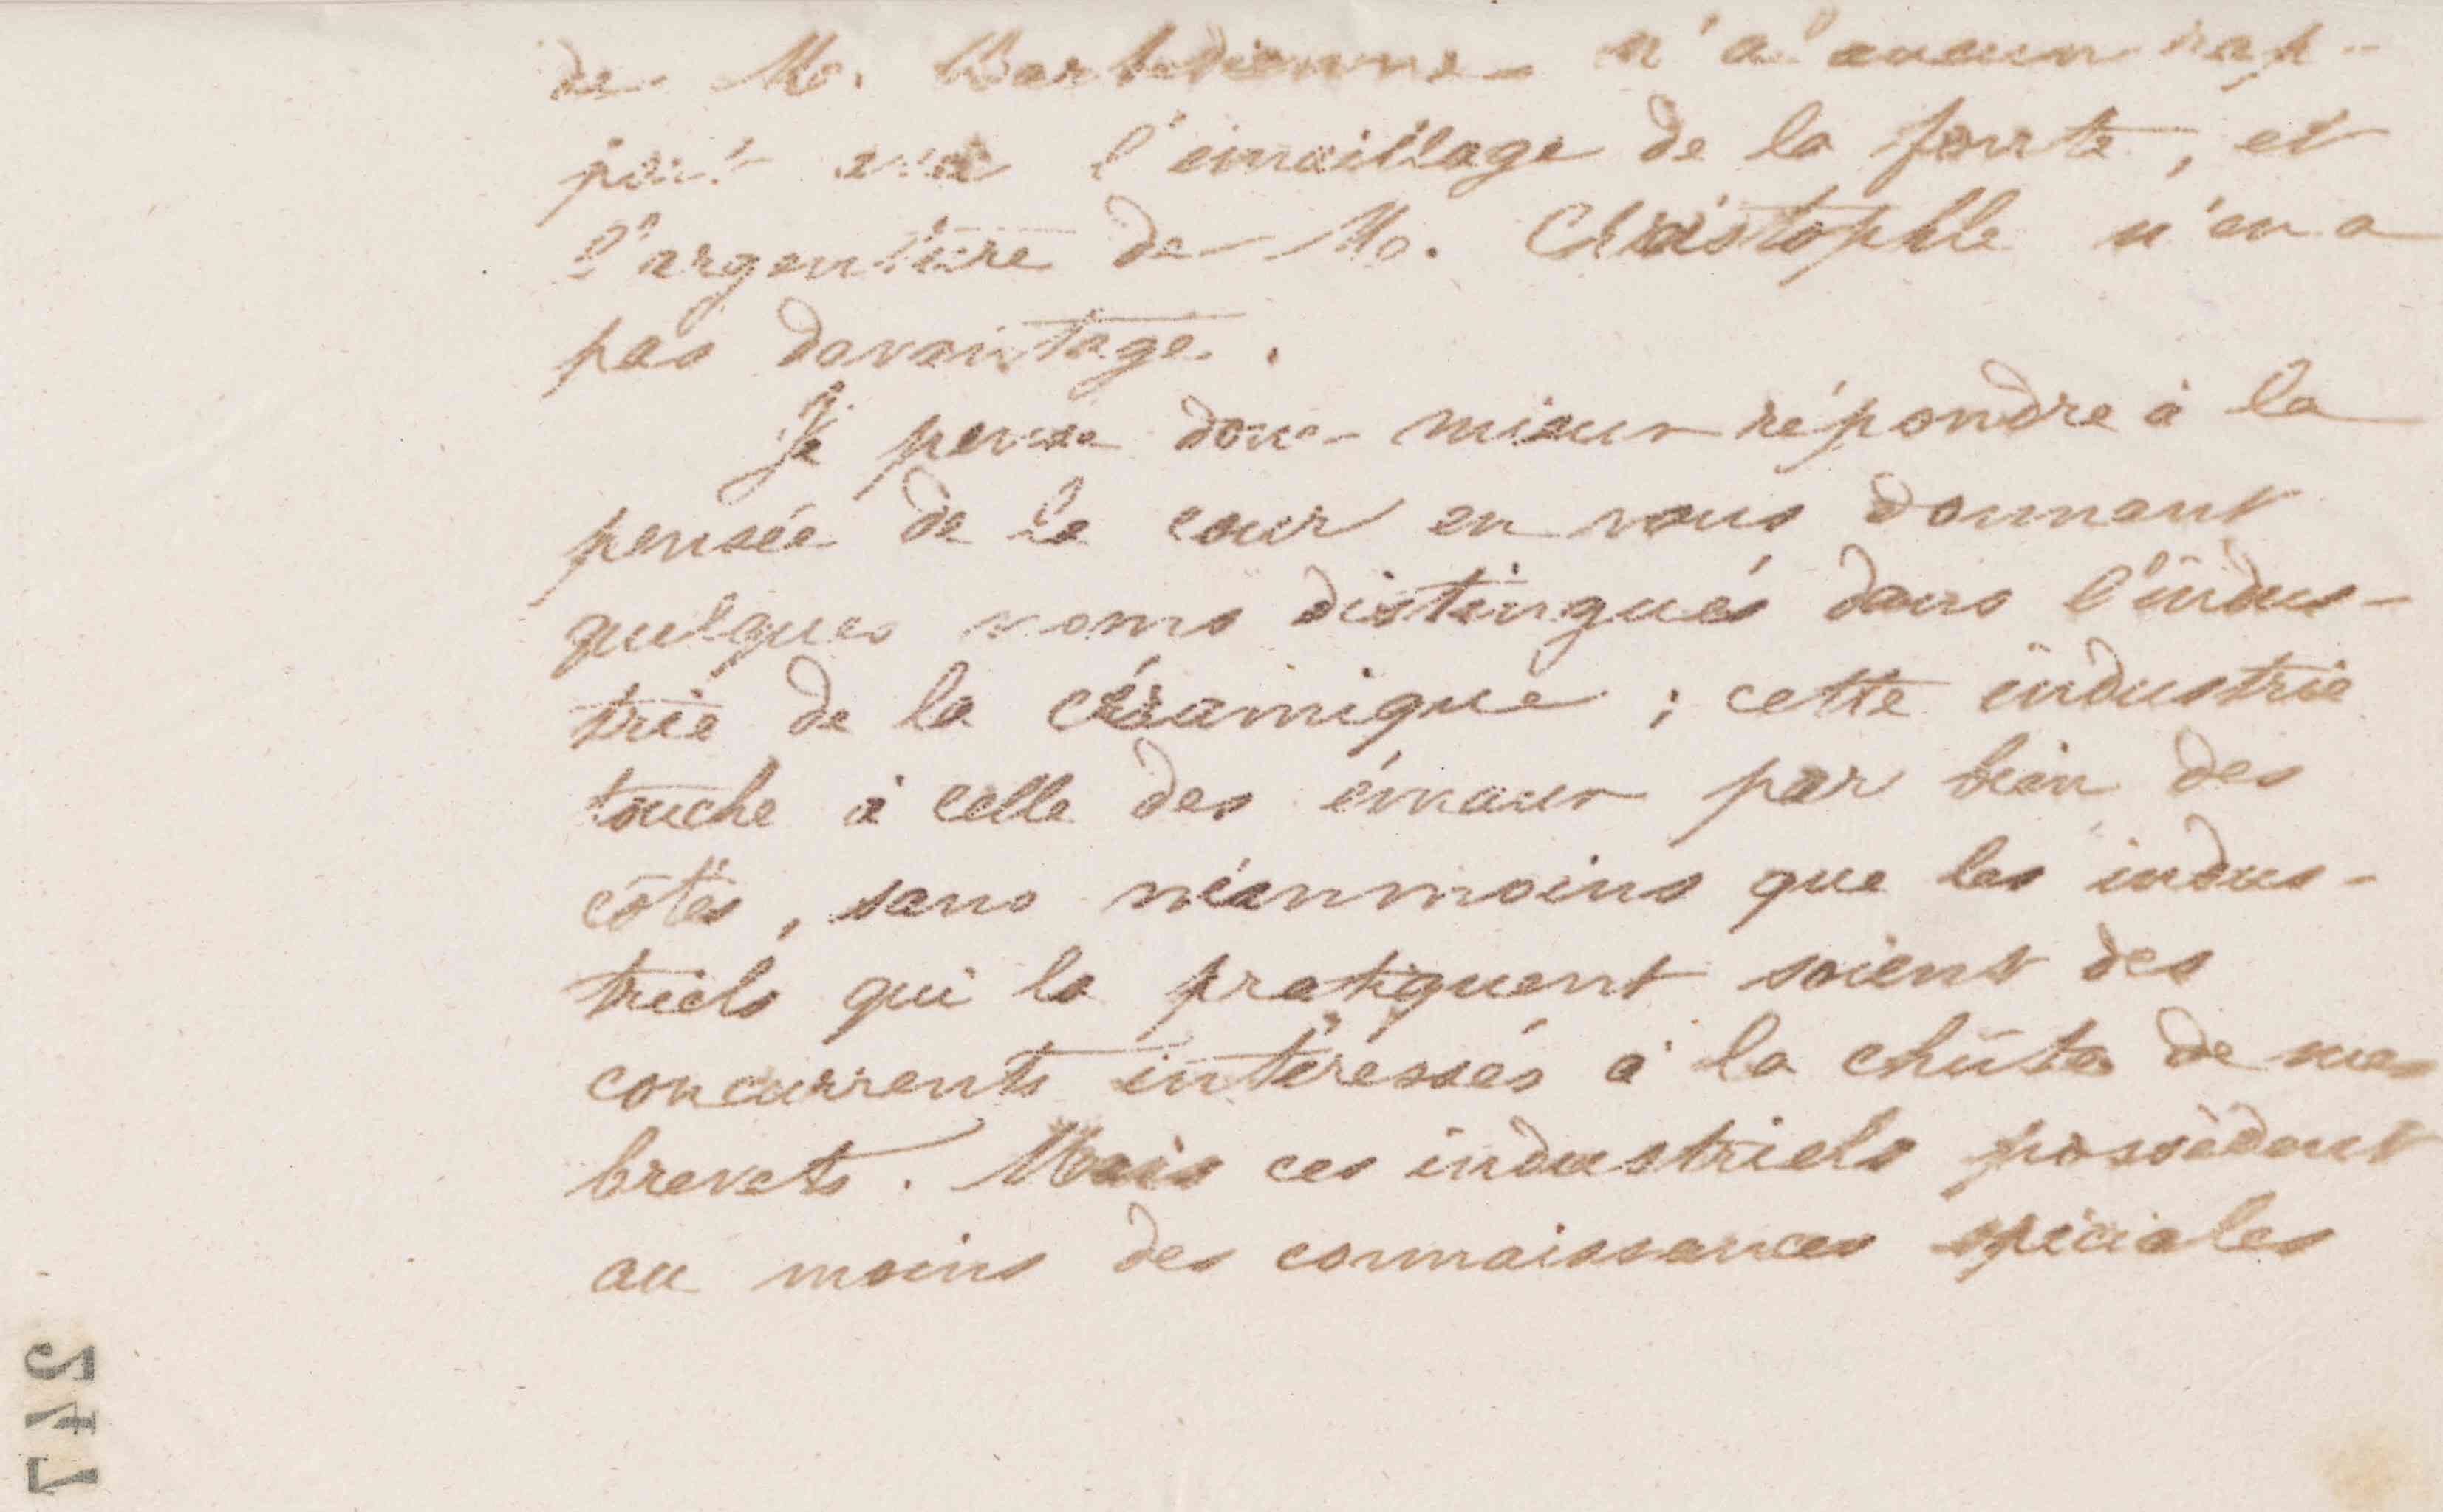 de M. Barbedienne n'a aucun rap-
port avec l'émaillage de la fonte, et
l'argenture de M. Christophle n'en a
pas davantage.
Je pense donc mieux répondre à la
pensée de la cour en vous donnant
quelques noms distingués dans l'indus-
trie de la céramique ; cette industrie
touche à celle des émaux par bien des
côtés, sans néanmoins que les indus-
triels qui la pratiquent soient des
concurrents intéressés à la chûte de mes
brevets. Mais ces industriels possèdent
au moins des connaissances spéciales
247